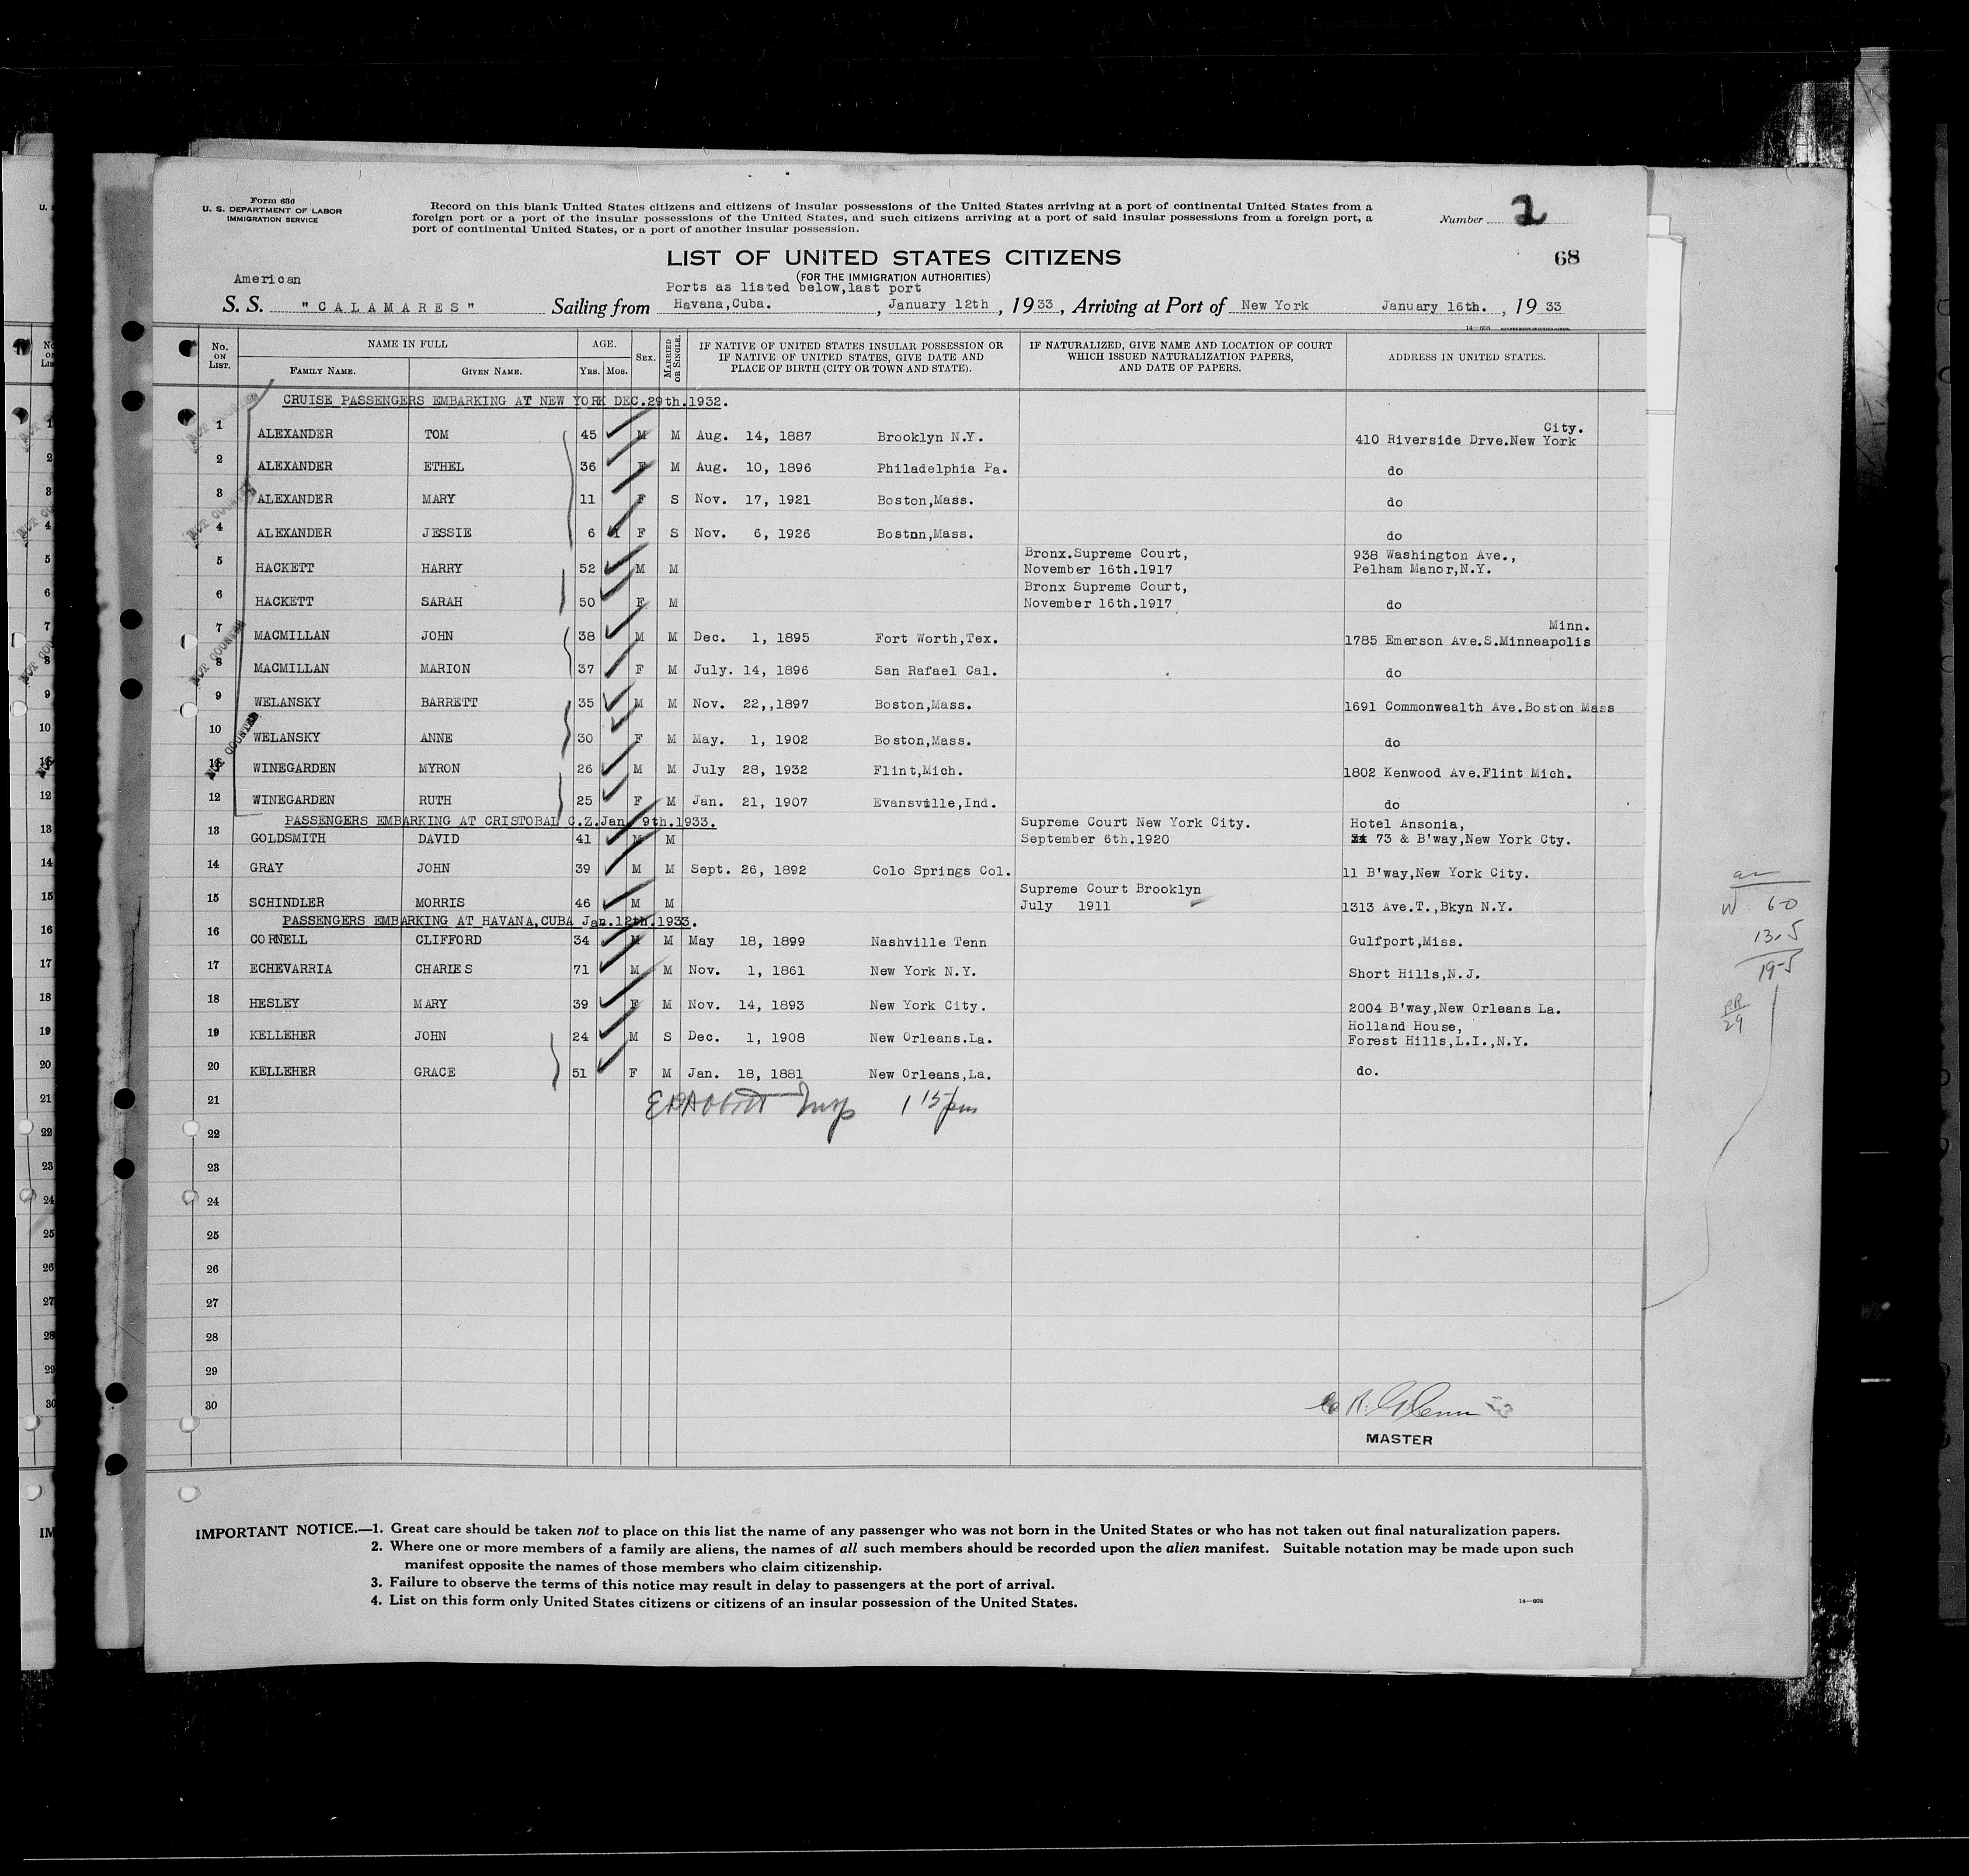 Form 630
U. S. DEPARTMENT OF LABOR
IMMIGRATION SERVICE
Record on this blank United States citizens and citizens of insular possessions of the United States arriving at a port of continental United States from a
foreign port or a port of the insular possessions of the United States, and such citizens arriving at a port of said insular possessions from a foreign port, a
port of continental United States, or a port of another insular possession.
Number 2
LIST OF UNITED STATES CITIZENS
68
(FOR THE IMMIGRATION AUTHORITIES)
American
Ports as listed below,last port
S. S. "CALAMARES" Sailing from Havana,Cuba. , January 12th , 1933 , Arriving at Port of New York January 16th. , 19 33
No. ON LIST. NAME IN FULL AGE. SEX. MARRIED OR SINGLE. IF NATIVE OF UNITED STATES INSULAR POSSESSION OR IF NATIVE OF UNITED STATES, GIVE DATE AND PLACE OF BIRTH (CITY OR TOWN AND STATE). IF NATURALIZED, GIVE NAME AND LOCATION OF COURT WHICH ISSUED NATURALIZATION PAPERS, AND DATE OF PAPERS. ADDRESS IN UNITED STATES.
FAMILY NAME. GIVEN NAME. YRS. MOS.
CRUISE PASSENGERS EMBARKING AT NEW YORK DEC.29th.1932.
City.
1 ALEXANDER TOM 45 M M Aug. 14, 1887 Brooklyn N.Y. 410 Riverside Drve.New York
2 ALEXANDER ETHEL 36 F M Aug. 10, 1896 Philadelphia Pa. do
3 ALEXANDER MARY 11 F S Nov. 17, 1921 Boston,Mass. do
4 ALEXANDER JESSIE 6 1 F S Nov. 6, 1926 Bostnn,Mass. do
Bronx.Supreme Court, 938 Washington Ave.,
5 HACKETT HARRY 52 M M November 16th.1917 Pelham Manor,N.Y.
Bronx Supreme Court,
6 HACKETT SARAH 50 F M November 16th.1917 do
Minn.
7 MACMILLAN JOHN 38 M M Dec. 1, 1895 Fort Worth,Tex. 1785 Emerson Ave.S.Minneapolis
8 MACMILLAN MARION 37 F M July. 14, 1896 San Rafael Cal. do
9 WELANSKY BARRETT 35 M M Nov. 22,,1897 Boston,Mass. 1691 Commonwealth Ave.Boston Mass
10 WELANSKY ANNE 30 F M May. 1, 1902 Boston,Mass. do
11 WINEGARDEN MYRON 26 M M July 28, 1932 Flint,Mich. 1802 Kenwood Ave.Flint Mich.
12 WINEGARDEN RUTH 25 F M Jan. 21, 1907 Evansville,Ind. do
NOT COUNTED
NOT COUNTED
NOT COUNTED
NOT COUNTED
PASSENGERS EMBARKING AT CRISTOBAL C.Z.Jan 9th.1933. Supreme Court New York City. Hotel Ansonia,
13 GOLDSMITH DAVID 41 M M September 6th.1920 73 & B'way,New York Cty.
14 GRAY JOHN 39 M M Sept. 26, 1892 Colo Springs Col. 11 B'way,New York City.
Supreme Court Brooklyn
15 SCHINDLER MORRIS 46 M M July 1911 1313 Ave.T.,Bkyn N.Y.
PASSENGERS EMBARKING AT HAVANA,CUBA Jan.12th.1933.
16 CORNELL CLIFFORD 34 M M May 18, 1899 Nashville Tenn Gulfport,Miss.
17 ECHEVARRIA CHARLES 71 M M Nov. 1, 1861 New York N.Y. Short Hills,N.J.
18 HESLEY MARY 39 F M Nov. 14, 1893 New York City. 2004 B'way,New Orleans La.
Holland House,
19 KELLEHER JOHN 24 M S Dec. 1, 1908 New Orleans.La. Forest Hills,L.I.,N.Y.
20 KELLEHER GRACE 51 F M Jan. 18, 1881 New Orleans,La. do.
21 Insp 1 15 pm
22
23
24
25
26
27
28
29
30
MASTER
IMPORTANT NOTICE.—1. Great care should be taken not to place on this list the name of any passenger who was not born in the United States or who has not taken out final naturalization papers.
2. Where one or more members of a family are aliens, the names of all such members should be recorded upon the alien manifest. Suitable notation may be made upon such
manifest opposite the names of those members who claim citizenship.
3. Failure to observe the terms of this notice may result in delay to passengers at the port of arrival.
4. List on this form only United States citizens or citizens of an insular possession of the United States.
14—608